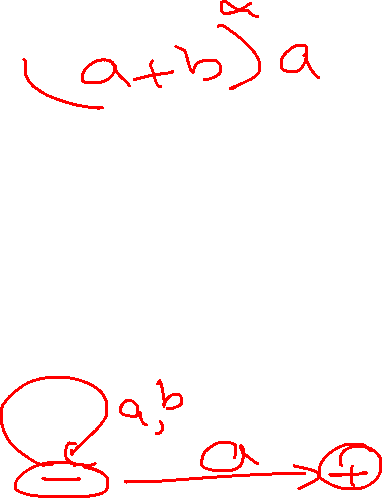 (a+b)*a
a,b
a
-
+